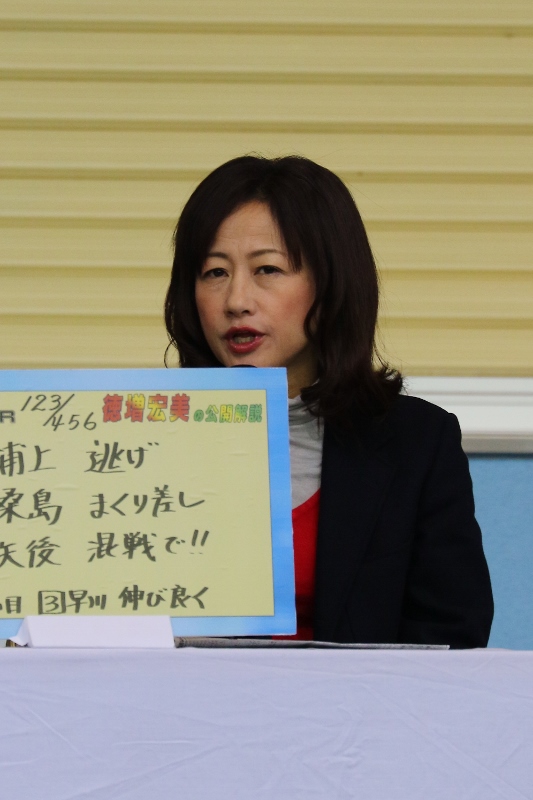 R 123/456 徳増宏美の公開解説
浦上 逃げ
桑島 まくり差し
矢後 混戦で!!
目 ③早川 伸び良く